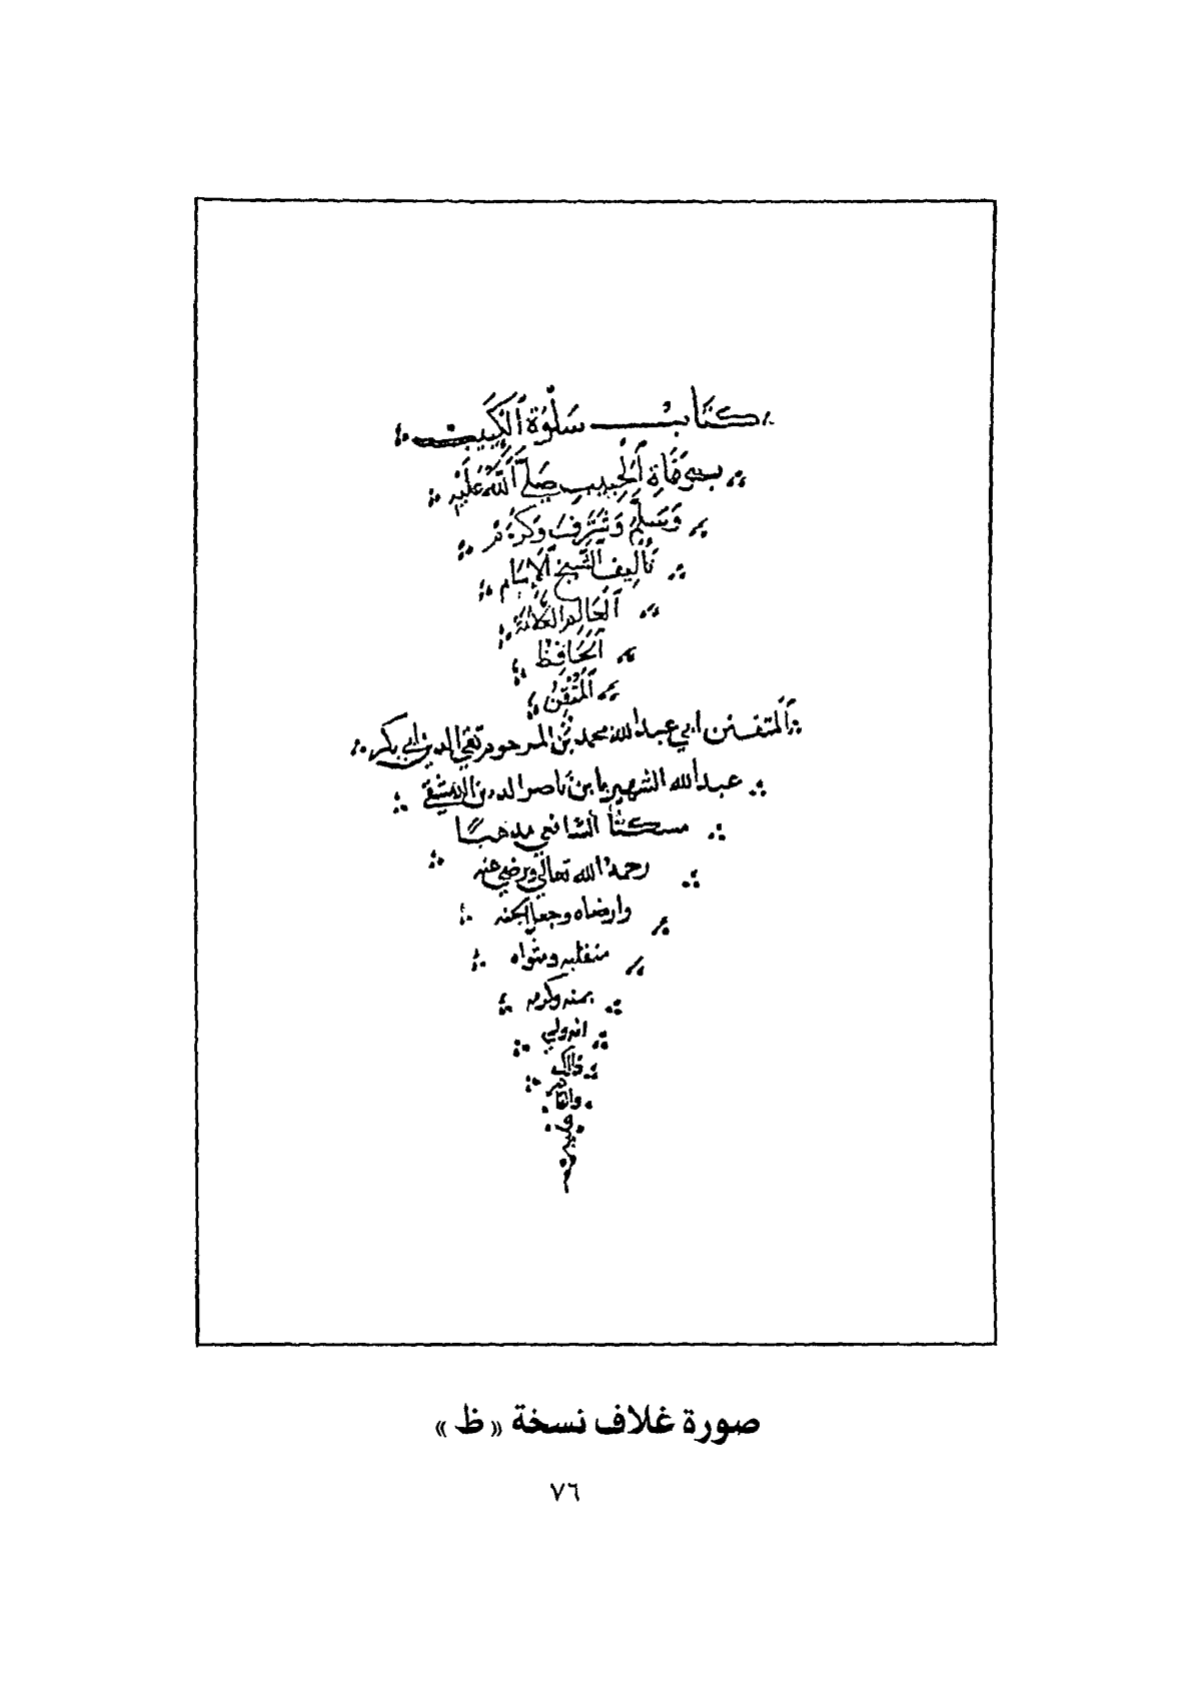 كتاب سلوة الكييب
بوفاة الحبيب صلى الله عليه
وسلم وشرف وكرم
تأليف الشيخ الإمام
العالم العلامة
الحافظ
المتقن
المتفنن ابي عبد الله محمد بن المرحوم تقي الدين ابي بكر
عبد الله الشهير بابن ناصر الدين الدمشقي
مسكنًا الشافعي مذهبًا
رحمه الله تعالى ورضي عنه
وارضاه وجعل الجنة
منقلبه ومثواه
بمنه وكرمه
انه ولي
ذلك
والقادر
عليه
صورة غلاف نسخة « ظ »
٧٦